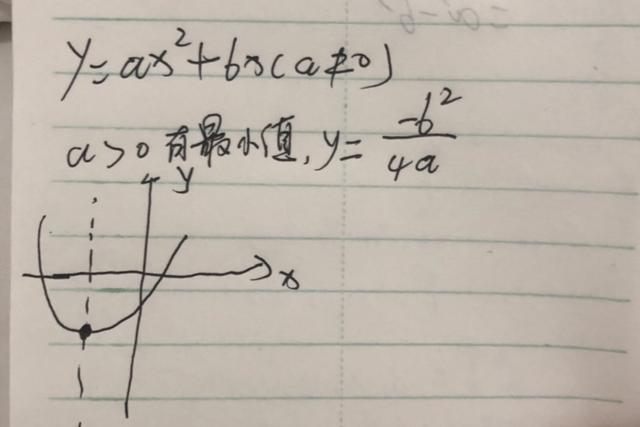 y=ax²+bx(a≠0)
a>0有最小值,y=-b²/4a
y
x